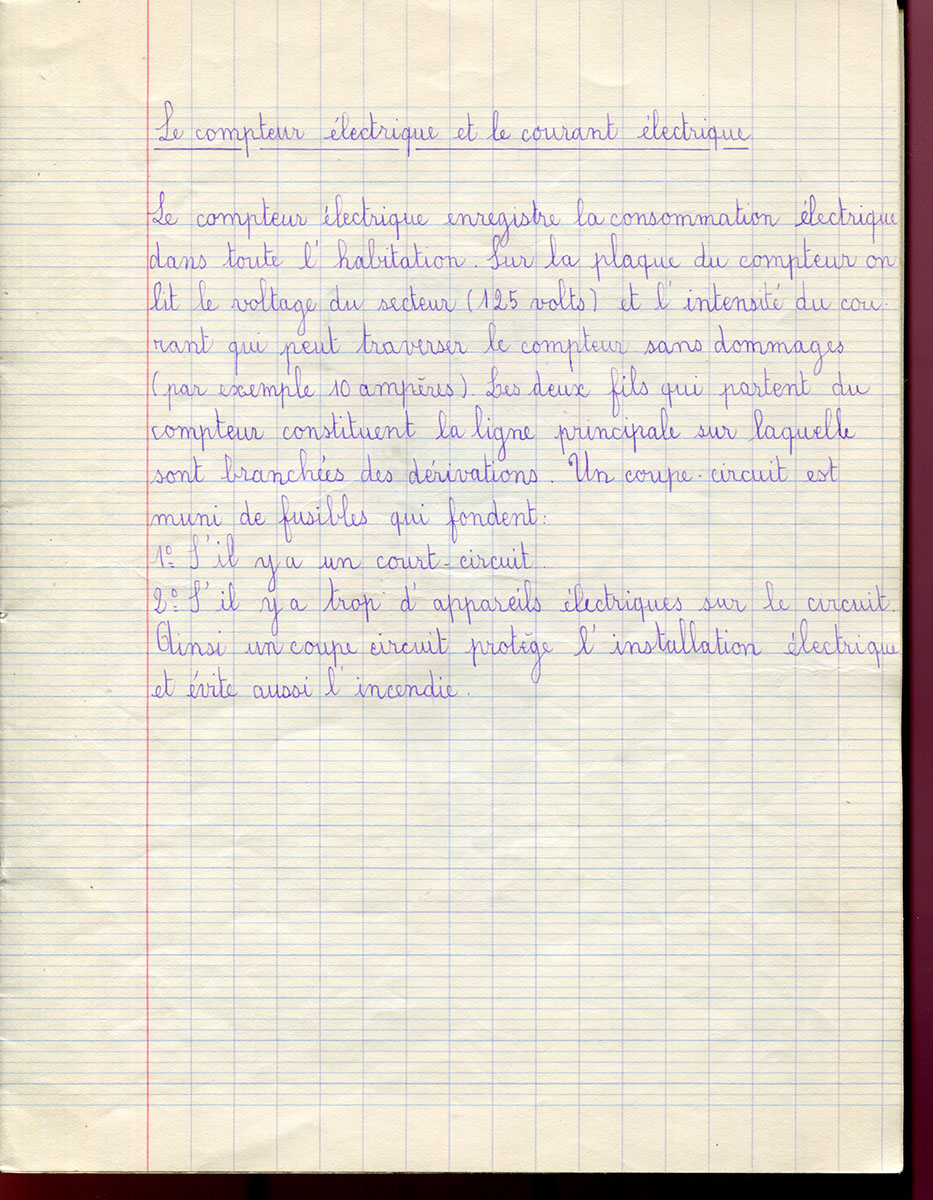 Le compteur électrique et le courant électrique
Le compteur électrique enregistre la consommation électrique
dans toute l'habitation. Sur la plaque du compteur on
lit le voltage du secteur (125 volts) et l'intensité du cou-
rant qui peut traverser le compteur sans dommages
(par exemple 10 ampères). Les deux fils qui partent du
compteur constituent la ligne principale sur laquelle
sont branchées des dérivations. Un coupe-circuit est
muni de fusibles qui fondent:
1º S'il y a un court-circuit.
2º S'il y a trop d'appareils électriques sur le circuit.
Ainsi un coupe circuit protège l'installation électrique
et évite aussi l'incendie.